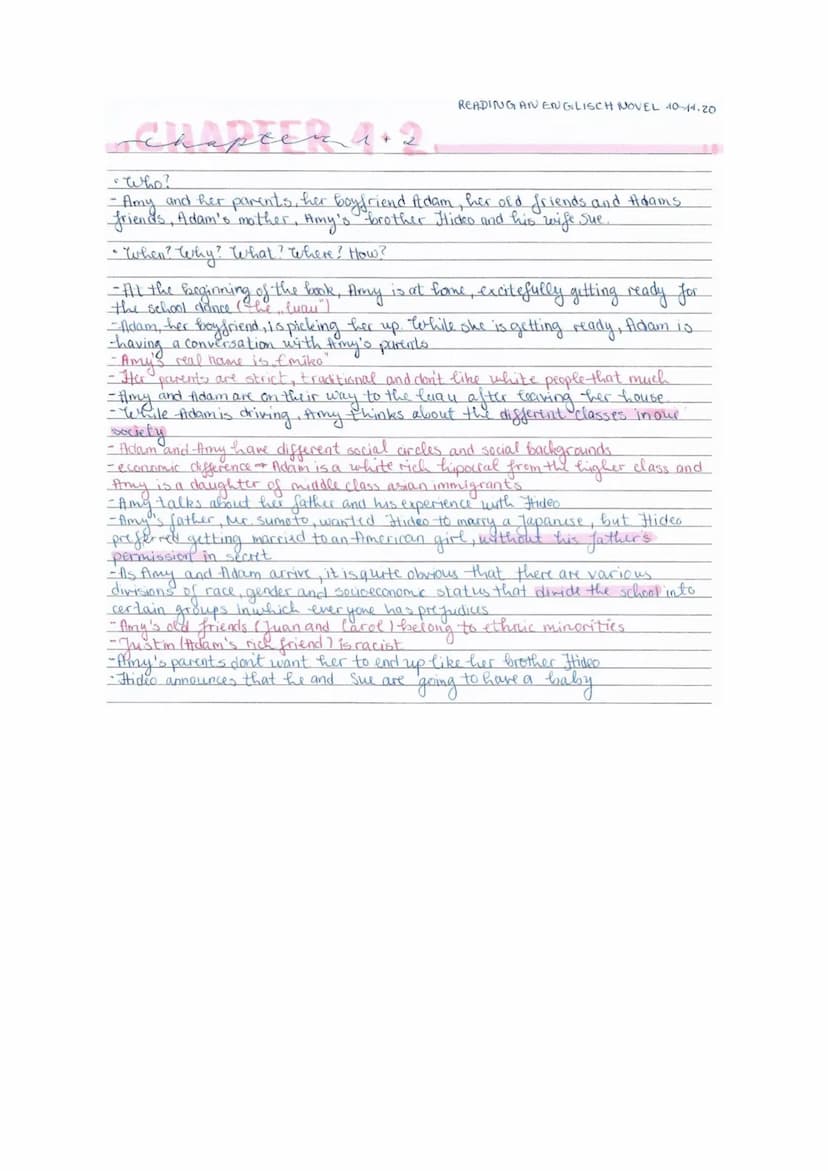 READING AN ENGLISCH NOVEL 10-11.20
CHAPTER 1+2
chapter 1+2
• Who?
- Amy and her parents, her boyfriend Adam, her old friends and Adams
friends, Adam's mother, Amy's brother Hideo and his wife Sue.
• When? Why? What? Where? How?
- At the beginning of the book, Amy is at home, excitefully getting ready for
the school dance (the „luau")
- Adam, her boyfriend, is picking her up. While she is getting ready, Adam is
having a conversation with Amy's parents
- Amy's real name is „Emiko"
- Her parents are strict, traditional and don't like white people that much
- Amy and Adam are on their way to the luau after leaving her house.
- While Adam is driving, Amy thinks about the different classes in our
society
- Adam and Amy have different social circles and social backgrounds
- economic difference → Adam is a white rich from the higher class and
Amy is a daughter of middle class asian immigrants
- Amy talks about her father and his experience with Hideo
- Amy's father, Mr. Sumoto, wanted Hideo to marry a Japanese, but Hideo
preferred getting married to an American girl, without his father's
permission in secret
- As Amy and Adam arrive, it is quite obvious that there are various
divisions of race, gender and socioeconomic status that divide the school into
certain groups in which everyone has prejudices
- Amy's old friends (Juan and Carol) belong to ethnic minorities
- Justin (Adam's rich friend) is racist
- Amy's parents don't want her to end up like her brother Hideo
- Hideo announces that he and Sue are going to have a baby